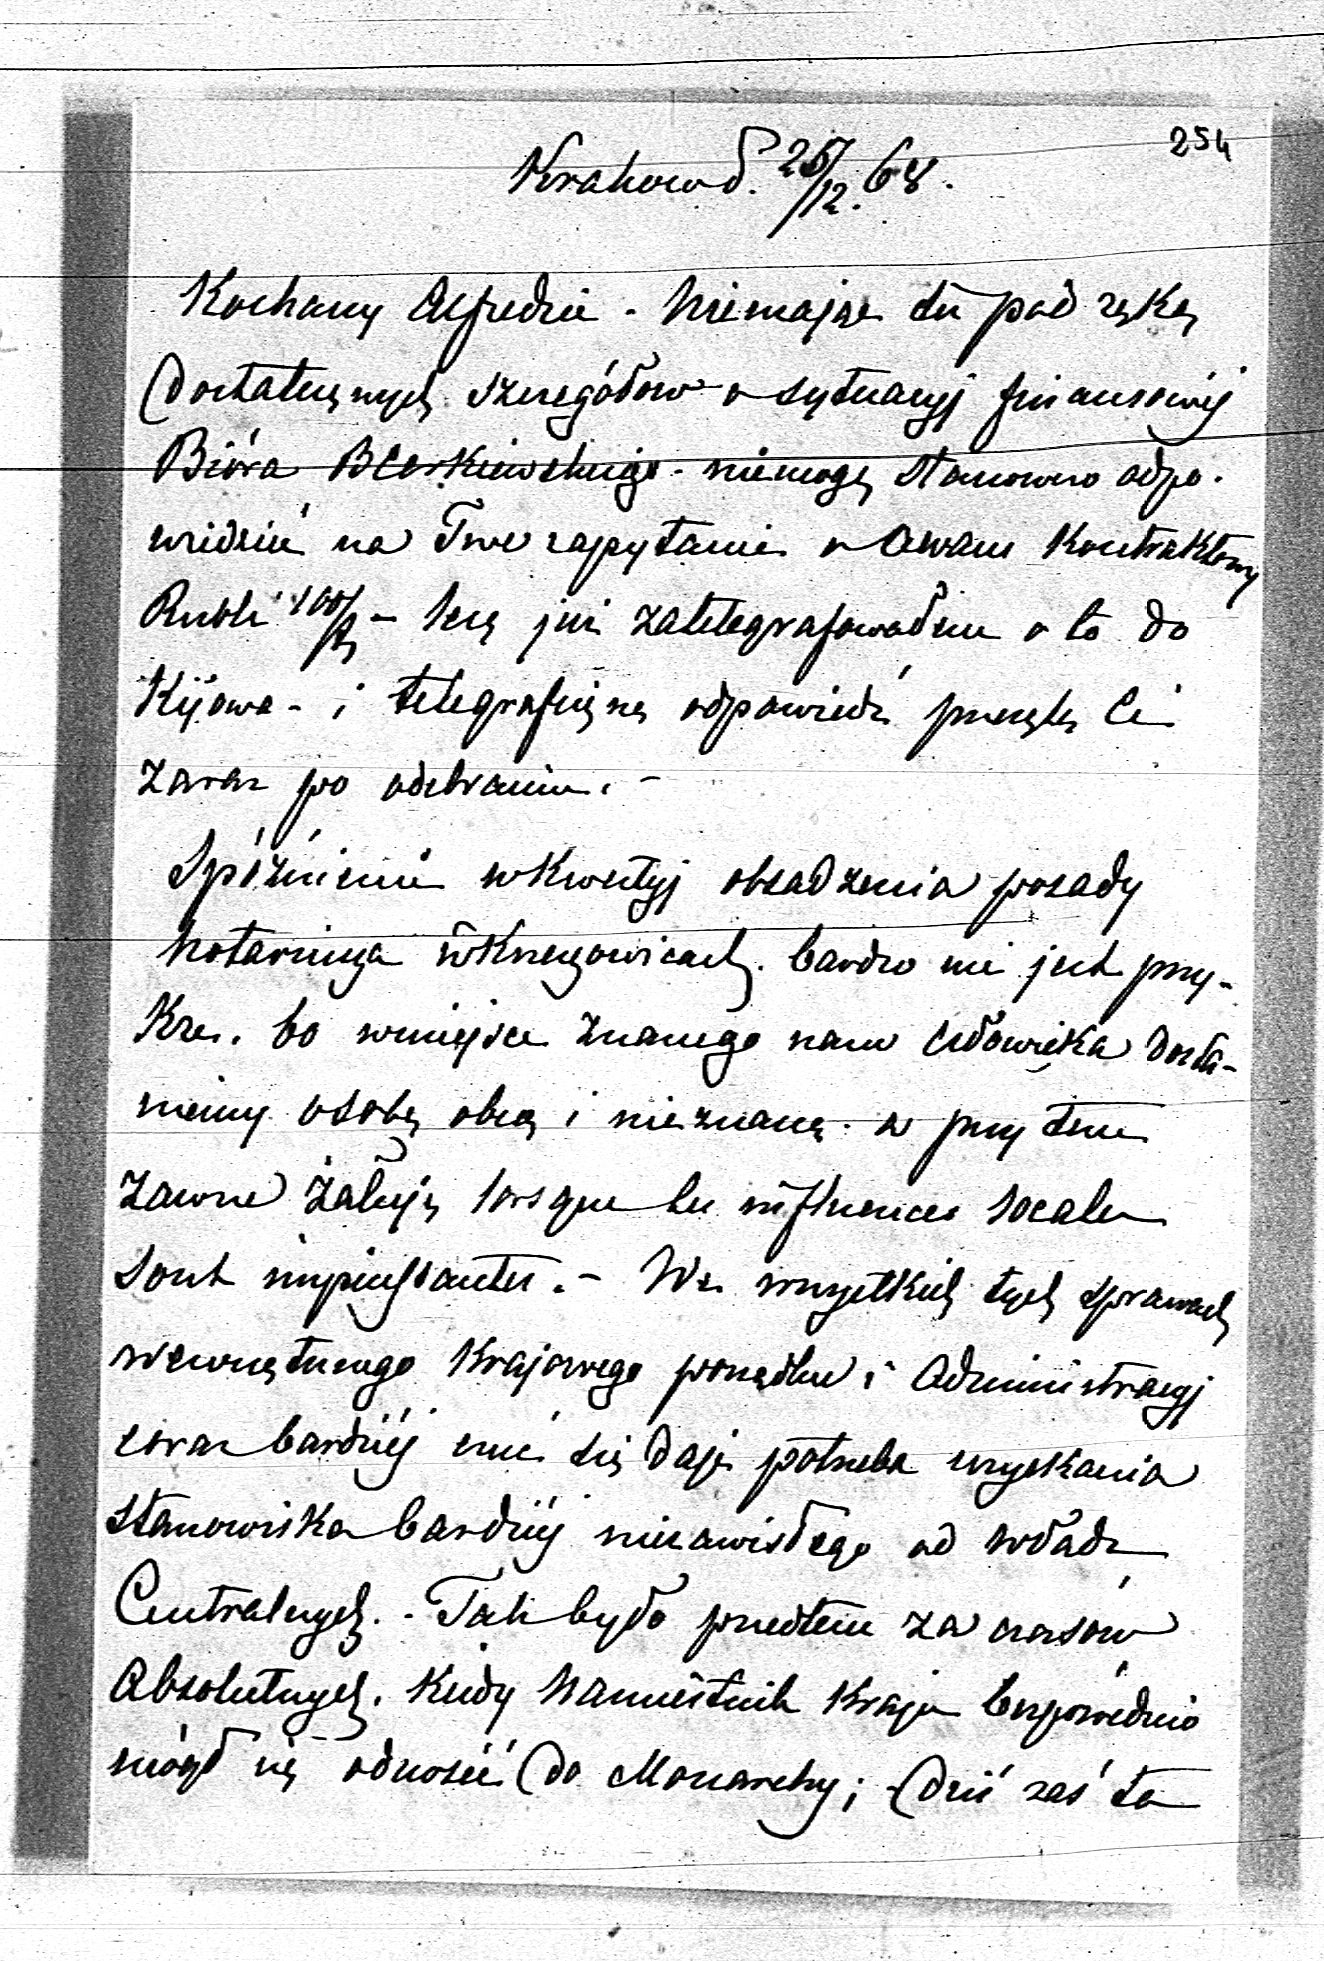 254
Krakow d. 26/12. 68.
Kochany Alfredzie. Niemając tu pod ręką
dostatecznych szczegółów o sytuacyj finansowéj
Bióra niemogę stanowczo odpo-
wiedzieć na Twe zapytanie o Awans Kontraktowy
Rubli lecz już zatelegrafowałem o to do
Kijowa - i telegraficzną odpowiedź prześlę Ci
zaraz po odebraniu. -
Spóźnienie w Kwestyj obsadzenia posady
Notariusza w Krzeszowicach bardzo mi jest przy-
Kre. bo wmiejsce znanego nam człowieka dosta-
niemy osobę obcą i nieznaną. a przy tem
zawsze żałuję lorsque les influences locales
sont impuissantes. - We wszystkich tych sprawach
wewnętrznego Krajowego porządku i Administracyj
coraz bardziéj czuć się daje potrzeba uzyskania
Stanowiska bardziéj niezawisłego od władz
Centralnych. - Tak było przedtem za czasów
Absolutnych. Kiedy Namiestnik Kraju bezpośrednio
mógł się odnosić do Monarchy; - dziś zaś ta